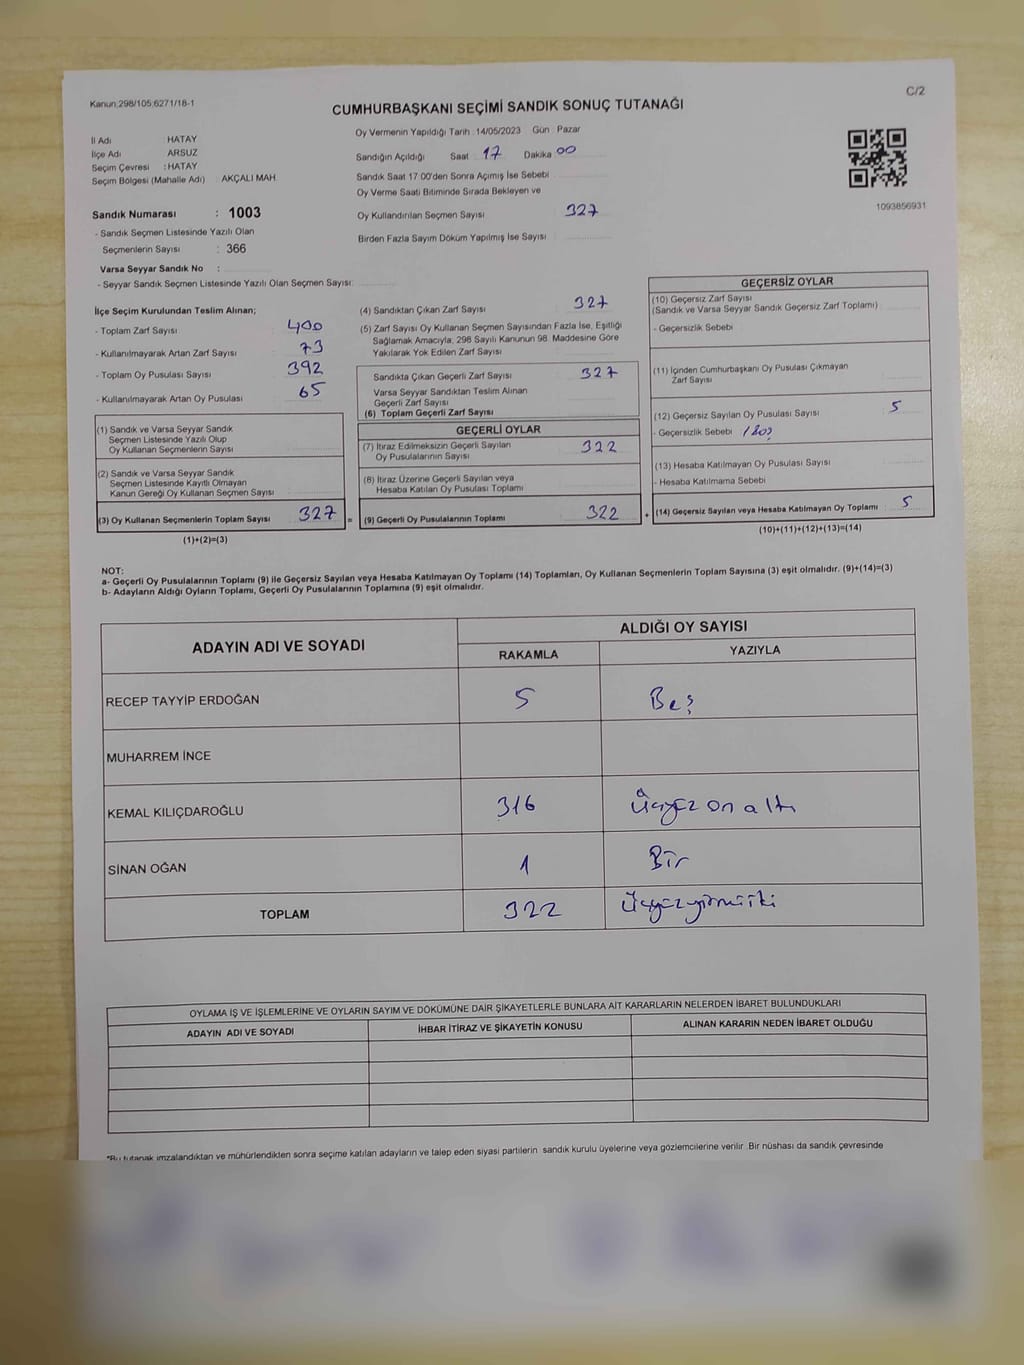 Kanun;298/105;6271/18-1
C/2
CUMHURBAŞKANI SEÇİMİ SANDIK SONUÇ TUTANAĞI
İl Adı : HATAY
İlçe Adı : ARSUZ
Seçim Çevresi : HATAY
Seçim Bölgesi (Mahalle Adı) : AKÇALI MAH.
Oy Vermenin Yapıldığı Tarih : 14/05/2023 Gün Pazar
Sandığın Açıldığı Saat 17 Dakika 00
Sandık Saat 17 00'den Sonra Açımış İse Sebebi
Oy Verme Saati Bitiminde Sırada Bekleyen ve
Oy Kullandırılan Seçmen Sayısı 327
Birden Fazla Sayım Döküm Yapılmış İse Sayısı
1093856931
Sandık Numarası : 1003
- Sandık Seçmen Listesinde Yazılı Olan
Seçmenlerin Sayısı : 366
Varsa Seyyar Sandık No :
- Seyyar Sandık Seçmen Listesinde Yazılı Olan Seçmen Sayısı:
İlçe Seçim Kurulundan Teslim Alınan;
- Toplam Zarf Sayısı : 400
- Kullanılmayarak Artan Zarf Sayısı : 73
- Toplam Oy Pusulası Sayısı : 392
- Kullanılmayarak Artan Oy Pusulası : 65
(1) Sandık ve Varsa Seyyar Sandık
Seçmen Listesinde Yazılı Olup
Oy Kullanan Seçmenlerin Sayısı :
(2) Sandık ve Varsa Seyyar Sandık
Seçmen Listesinde Kayıtlı Olmayan
Kanun Gereği Oy Kullanan Seçmen Sayısı :
(3) Oy Kullanan Seçmenlerin Toplam Sayısı : 327 =
(1)+(2)=(3)
(4) Sandıktan Çıkan Zarf Sayısı : 327
(5) Zarf Sayısı Oy Kullanan Seçmen Sayısından Fazla İse, Eşitliği
Sağlamak Amacıyla, 298 Sayılı Kanunun 98. Maddesine Göre
Yakılarak Yok Edilen Zarf Sayısı :
Sandıkta Çıkan Geçerli Zarf Sayısı : 327
Varsa Seyyar Sandıktan Teslim Alınan
Geçerli Zarf Sayısı :
(6) Toplam Geçerli Zarf Sayısı :
GEÇERLİ OYLAR
(7) İtiraz Edilmeksizin Geçerli Sayılan
Oy Pusulalarının Sayısı : 322
(8) İtiraz Üzerine Geçerli Sayılan veya
Hesaba Katılan Oy Pusulası Toplamı :
(9) Geçerli Oy Pusulalarının Toplamı : 322 +
GEÇERSİZ OYLAR
(10) Geçersiz Zarf Sayısı
(Sandık ve Varsa Seyyar Sandık Geçersiz Zarf Toplamı) :
- Geçersizlik Sebebi
(11) İçinden Cumhurbaşkanı Oy Pusulası Çıkmayan
Zarf Sayısı :
(12) Geçersiz Sayılan Oy Pusulası Sayısı : 5
- Geçersizlik Sebebi
(13) Hesaba Katılmayan Oy Pusulası Sayısı :
- Hesaba Katılmama Sebebi
(14) Geçersiz Sayılan veya Hesaba Katılmayan Oy Toplamı : 5
(10)+(11)+(12)+(13)=(14)
NOT:
a- Geçerli Oy Pusulalarının Toplamı (9) ile Geçersiz Sayılan veya Hesaba Katılmayan Oy Toplamı (14) Toplamları, Oy Kullanan Seçmenlerin Toplam Sayısına (3) eşit olmalıdır. (9)+(14)=(3)
b- Adayların Aldığı Oyların Toplamı, Geçerli Oy Pusulalarının Toplamına (9) eşit olmalıdır.
ADAYIN ADI VE SOYADI
ALDIĞI OY SAYISI
RAKAMLA YAZIYLA
RECEP TAYYİP ERDOĞAN 5 Beş
MUHARREM İNCE
KEMAL KILIÇDAROĞLU 316 Üçyüz on altı
SİNAN OĞAN 1 Bir
TOPLAM 322 Üçyüzyirmiiki
OYLAMA İŞ VE İŞLEMLERİNE VE OYLARIN SAYIM VE DÖKÜMÜNE DAİR ŞİKAYETLERLE BUNLARA AİT KARARLARIN NELERDEN İBARET BULUNDUKLARI
ADAYIN ADI VE SOYADI İHBAR İTİRAZ VE ŞİKAYETİN KONUSU ALINAN KARARIN NEDEN İBARET OLDUĞU
*Bu tutanak imzalandıktan ve mühürlendikten sonra seçime katılan adayların ve talep eden siyasi partilerin sandık kurulu üyelerine veya gözlemcilerine verilir. Bir nüshası da sandık çevresinde